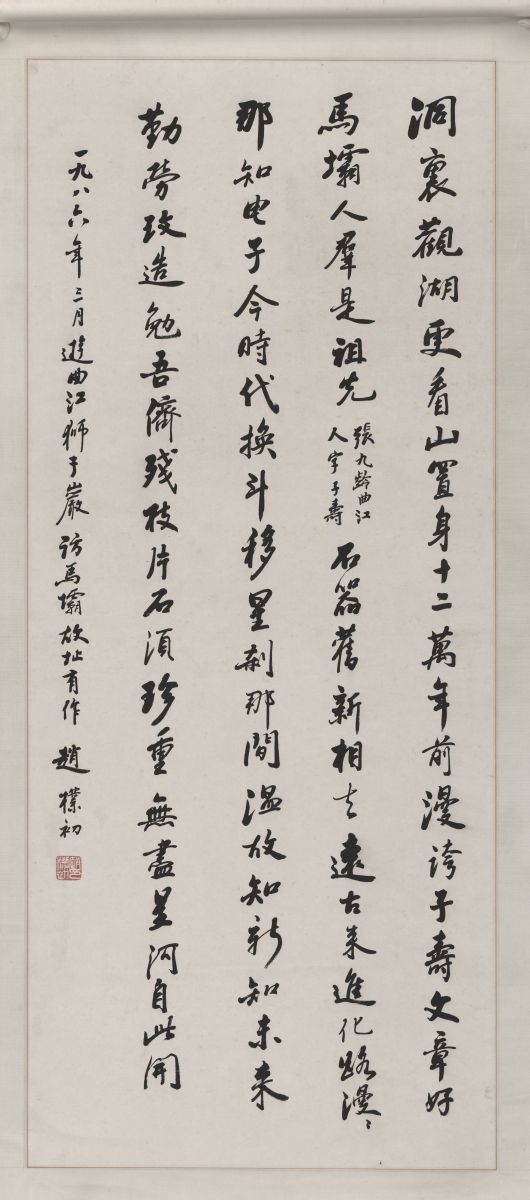 洞裏觀湖更看山置身十二萬年前漫誇子壽文章好
馬壩人羣是祖先
張九齡曲江
人字子壽
石器舊新相去遠古來進化路漫〻
那知电子今時代換斗移星刹那間温故知新知未来
勤勞改造勉吾儕殘枝片石須珍重無盡星河自此開
一九八六年三月遊曲江獅子巖訪馬壩故址有作 趙樸初